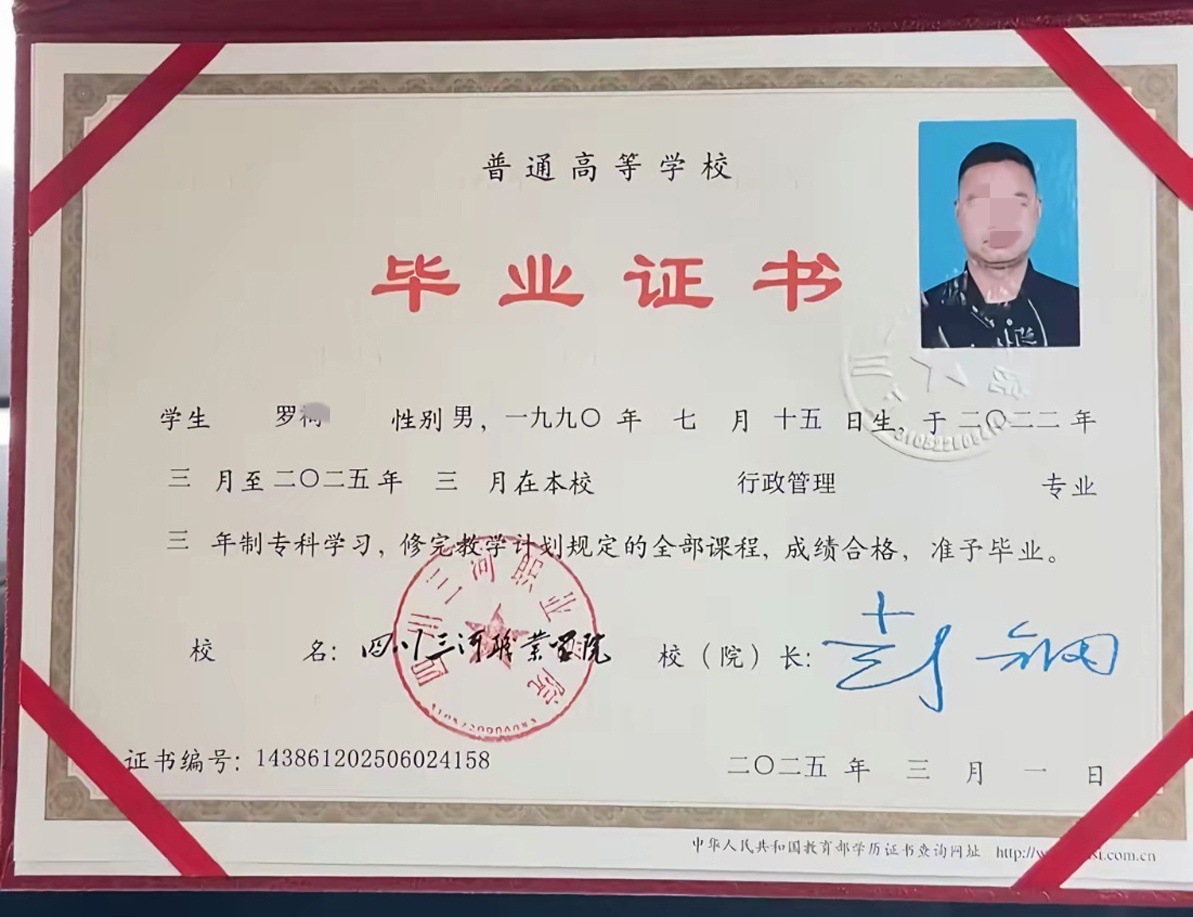 普通高等学校
毕业证书
学生 罗 性别 男，一九九〇 年 七 月 十五 日生，于 二〇二二 年
三 月至 二〇二五 年 三 月在本校 行政管理 专业
三 年制专科学习，修完教学计划规定的全部课程，成绩合格，准予毕业。
校 名：四川三河職業学院 校（院）长：彭
四川三河职业学院
证书编号：143861202506024158
二〇二五 年 三 月 一 日
中华人民共和国教育部学历证书查询网址 http://w .com.cn